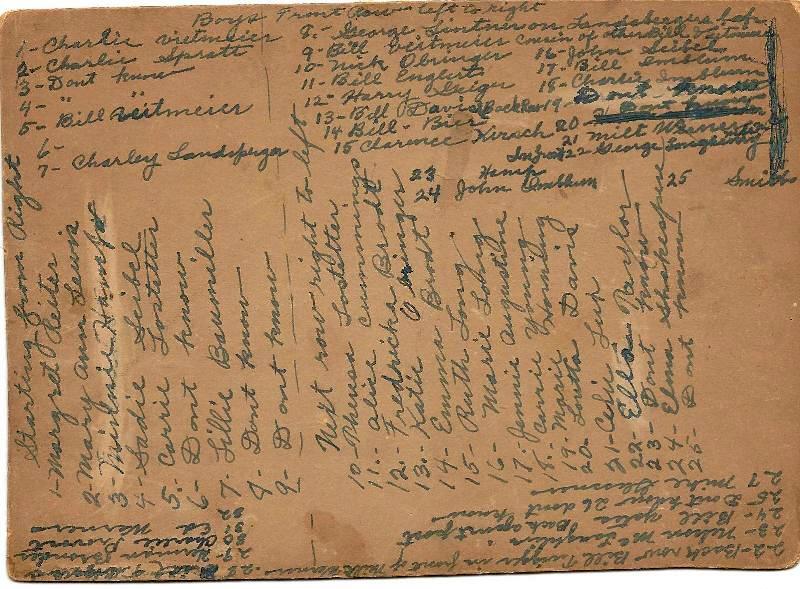 Boys Front Row left to right
1- Charlie Vietmeier
2- Charlie Spratt
3- Dont know
4- " "
5- Bill Veitmeier
6-
7- Charley Landsperger
8.- George Lintner on Landsbergers
9- Bill Veitmeier cousin of other Bill
10- Nick Obringer
11- Bill Englert
12- Harry Geiger
13- Bill Davis Back Row
14 Bill- Bier
15 Clarence Kirsch
16- John Seibel
17- Bill Imblum
18- Charlie Imblum
19- Dont know
20 Dont know
21 Milt Werner
22 George
23 Hemp
24 John Imblum
25 Smith
Starting from Right
1- Margret Reiter
2- Mary Ann Lewis
3- Minnie Hempf
4- Sadie Seibel
5- Carrie Lostetter
6- Dont know
7- Lillie Baumiller
8- Dont know
9- Dont know
Next row right to left
10- Lostetter
11.- Alice Cummings
12- Fredricka Brodt
13- Katie
14- Emma Brodt
15- Ruth Long
16- Marie Long
17- Jennie Augustine
18- Carrie Young
19- Marie
20- Loretta Davis
21- Celie
22- Ella Taylor
23- Dont know
24- Elma Shakespeare
25- Dont know
22- Back row Bill in front of Milt Werner
23- Nelson McLaughlin
24- Bill Back
25 Dont know 26 dont know
27 Mike
28
29- Herman
30 Charlie Provost
31 Ed Werner
32